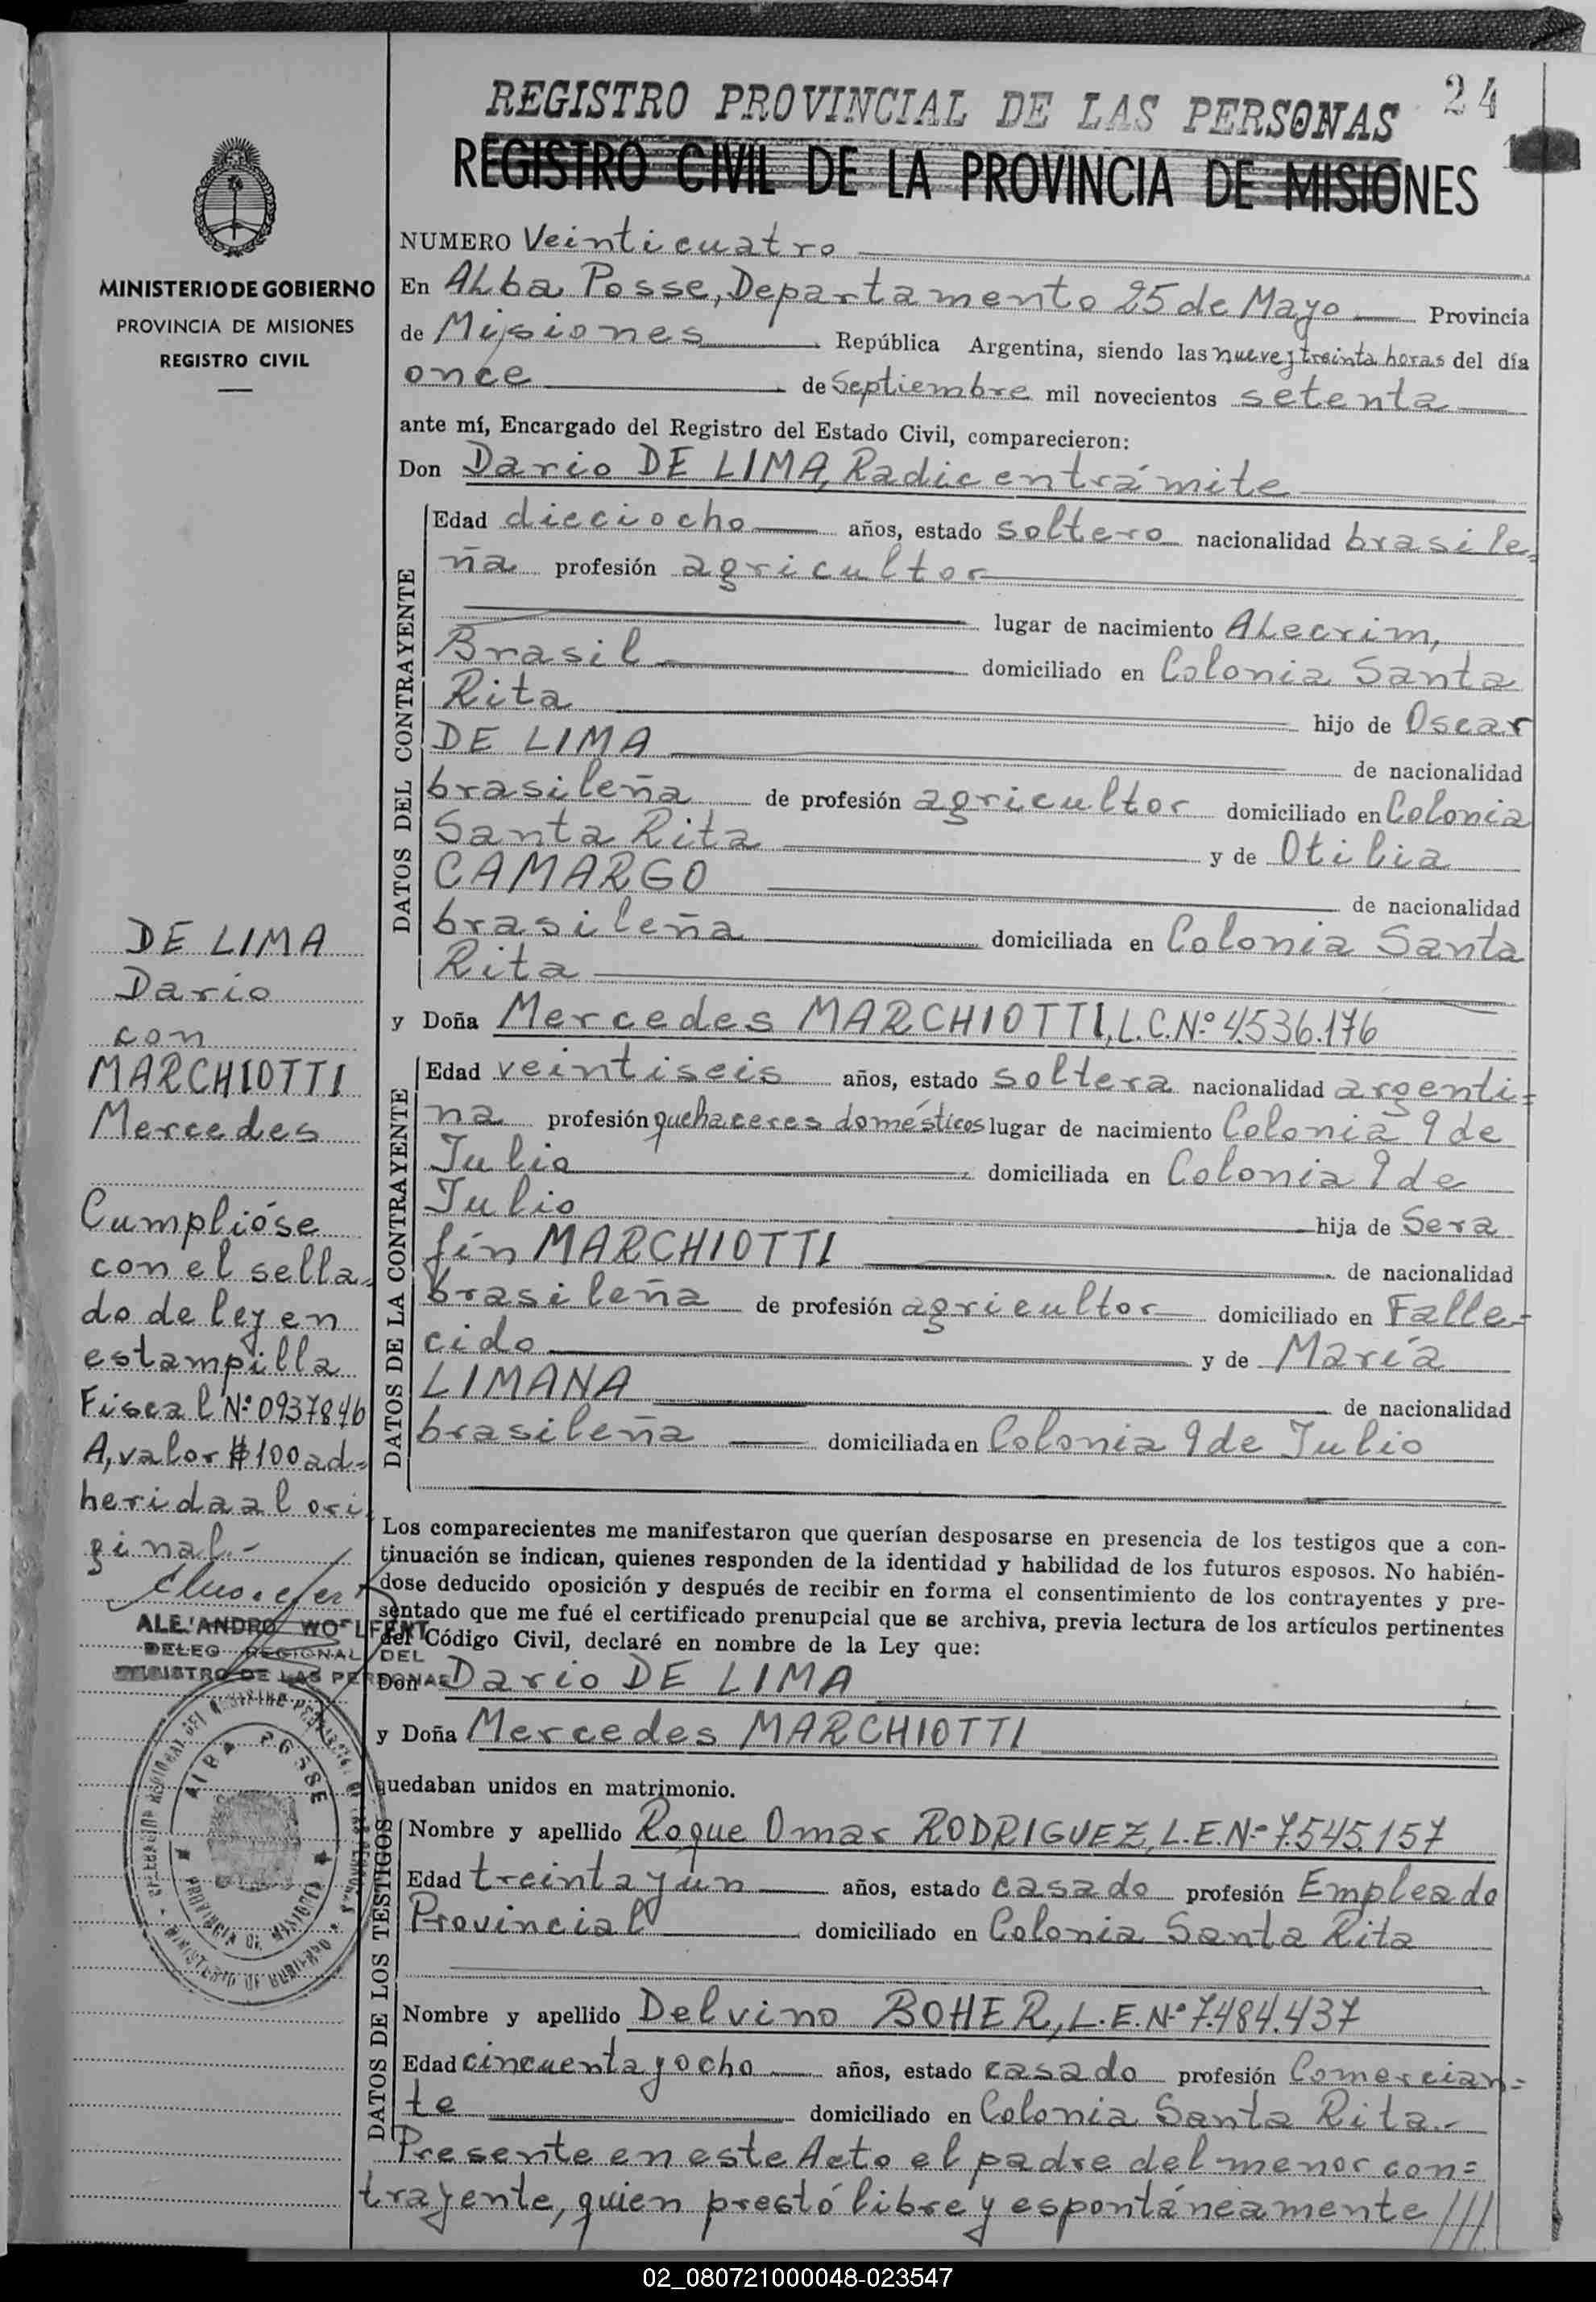 24
REGISTRO PROVINCIAL DE LAS PERSONAS
REGISTRO CIVIL DE LA PROVINCIA DE MISIONES
MINISTERIO DE GOBIERNO
PROVINCIA DE MISIONES
REGISTRO CIVIL
NUMERO Veinticuatro
En Alba Posse, Departamento 25 de Mayo Provincia
de Misiones República Argentina, siendo las nueve y treinta horas del día
once de Septiembre mil novecientos setenta
ante mí, Encargado del Registro del Estado Civil, comparecieron:
Don Dario DE LIMA, Radic en trámite
DATOS DEL CONTRAYENTE
Edad dieciocho años, estado soltero nacionalidad brasile=
ña profesión agricultor
lugar de nacimiento Alecrim,
Brasil domiciliado en Colonia Santa
Rita hijo de Oscar
DE LIMA de nacionalidad
brasileña de profesión agricultor domiciliado en Colonia
Santa Rita y de Otilia
CAMARGO de nacionalidad
brasileña domiciliada en Colonia Santa
Rita
y Doña Mercedes MARCHIOTTI, L.C.Nº 4.536.176
DATOS DE LA CONTRAYENTE
Edad veintiseis años, estado soltera nacionalidad argenti=
na profesión quehaceres domésticos lugar de nacimiento Colonia 9 de
Julio domiciliada en Colonia 9 de
Julio hija de Sera
fín MARCHIOTTI de nacionalidad
brasileña de profesión agricultor domiciliado en Falle=
cido y de María
LIMANA de nacionalidad
brasileña domiciliada en Colonia 9 de Julio
Los comparecientes me manifestaron que querían desposarse en presencia de los testigos que a con-
tinuación se indican, quienes responden de la identidad y habilidad de los futuros esposos. No habién-
dose deducido oposición y después de recibir en forma el consentimiento de los contrayentes y pre-
sentado que me fué el certificado prenupcial que se archiva, previa lectura de los artículos pertinentes
del Código Civil, declaré en nombre de la Ley que:
Don Dario DE LIMA
y Doña Mercedes MARCHIOTTI
quedaban unidos en matrimonio.
DATOS DE LOS TESTIGOS
Nombre y apellido Roque Omar RODRIGUEZ, L.E.Nº 7.545.157
Edad treinta y un años, estado casado profesión Empleado
Provincial domiciliado en Colonia Santa Rita
Nombre y apellido Delvino BOHER, L.E.Nº 7.484.437
Edad cincuenta y ocho años, estado casado profesión Comercian=
te domiciliado en Colonia Santa Rita.-
Presente en este Acto el padre del menor con=
trayente, quien prestó libre y espontáneamente ///
DE LIMA
Dario
con
MARCHIOTTI
Mercedes
Cumplióse
con el sella=
do de ley en
estampilla
Fiscal Nº 0937846
A, valor $ 100 ad=
herida al ori
ginal.-
DELEG REGIONAL DEL
REGISTRO DE LAS PERSONAS
ALBA POSSE
PROVINCIA DE MISIONES
MINISTERIO DE GOBIERNO
02_080721000048-023547